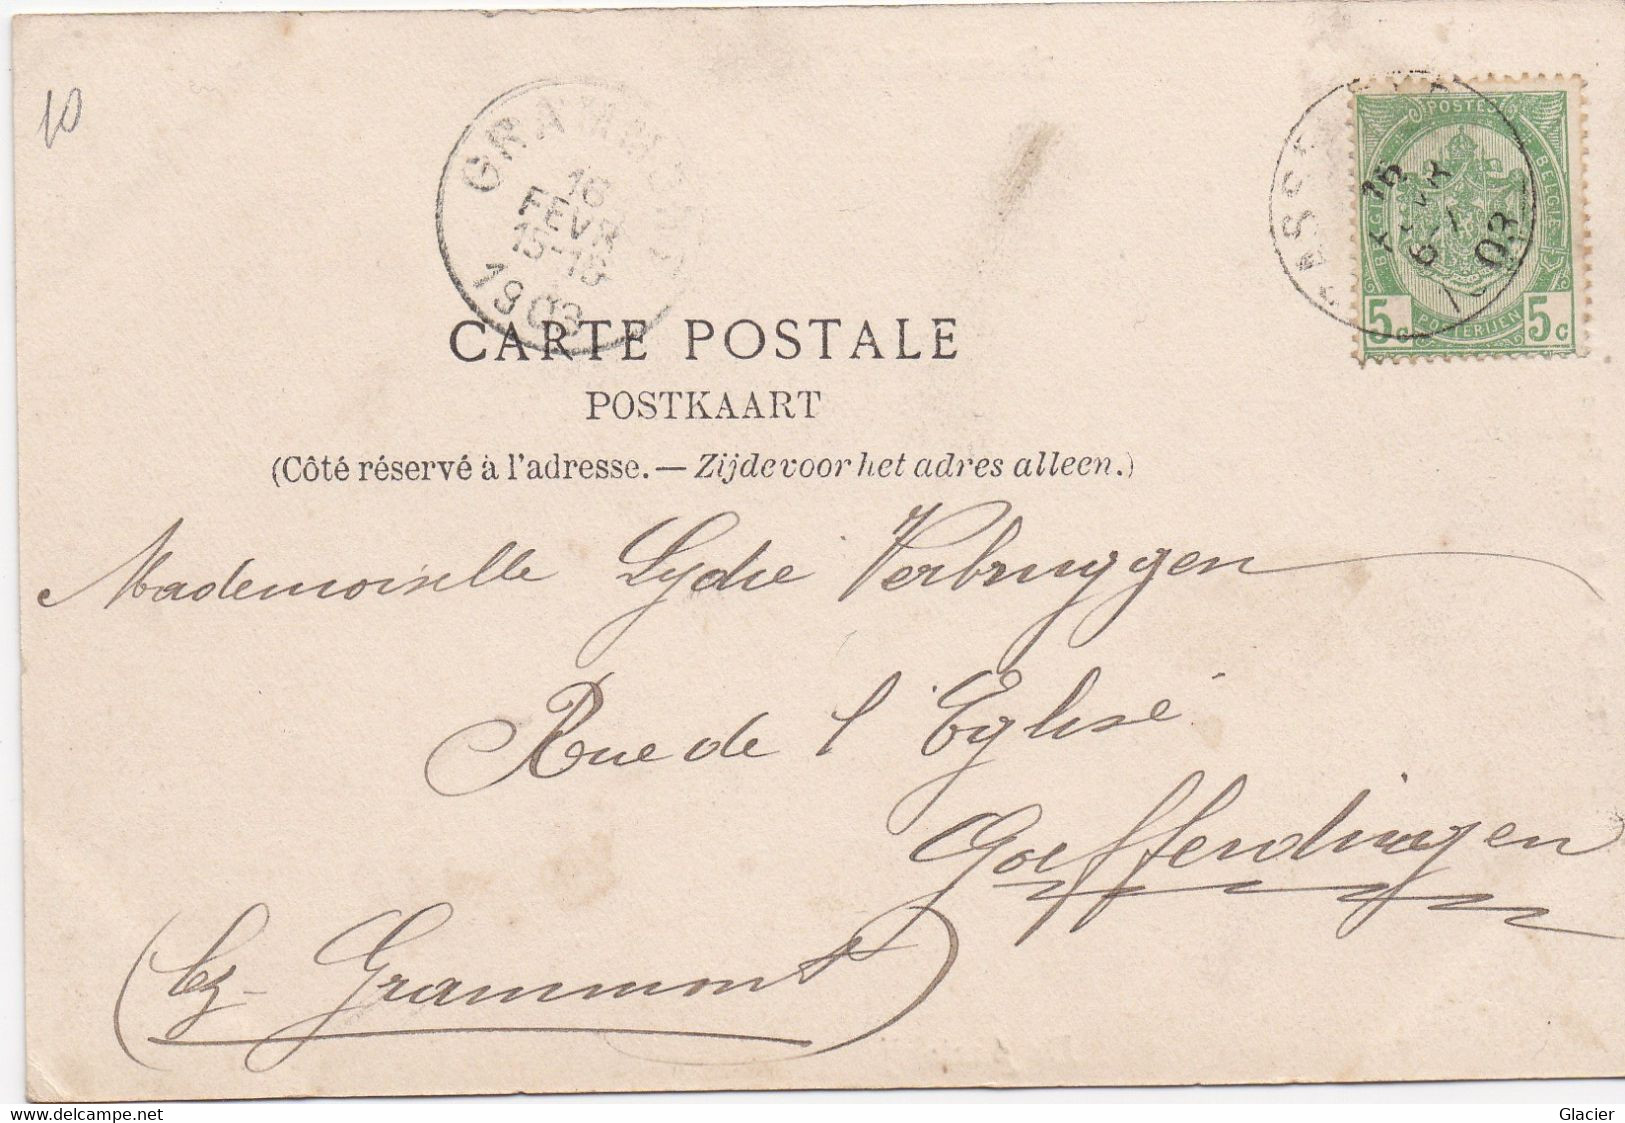 10
GRAMMONT
16
FEVR
15-16
1903
POSTES
BELGIE
5c POSTERIJEN 5c
16
03
CARTE POSTALE
POSTKAART
(Côté réservé à l'adresse. — Zijde voor het adres alleen.)
Mademoiselle Lydie Verbruggen
Rue de l'Eglise
Goefferdingen
(lez-Grammont)
delcampe.net
Glacier